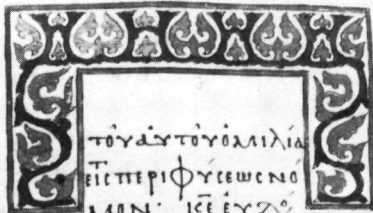 τοῦ αὐτοῦ ὁμιλία
εἰς τ περὶ φύσεως νό
μον· κ̅ε̅ εὐλο